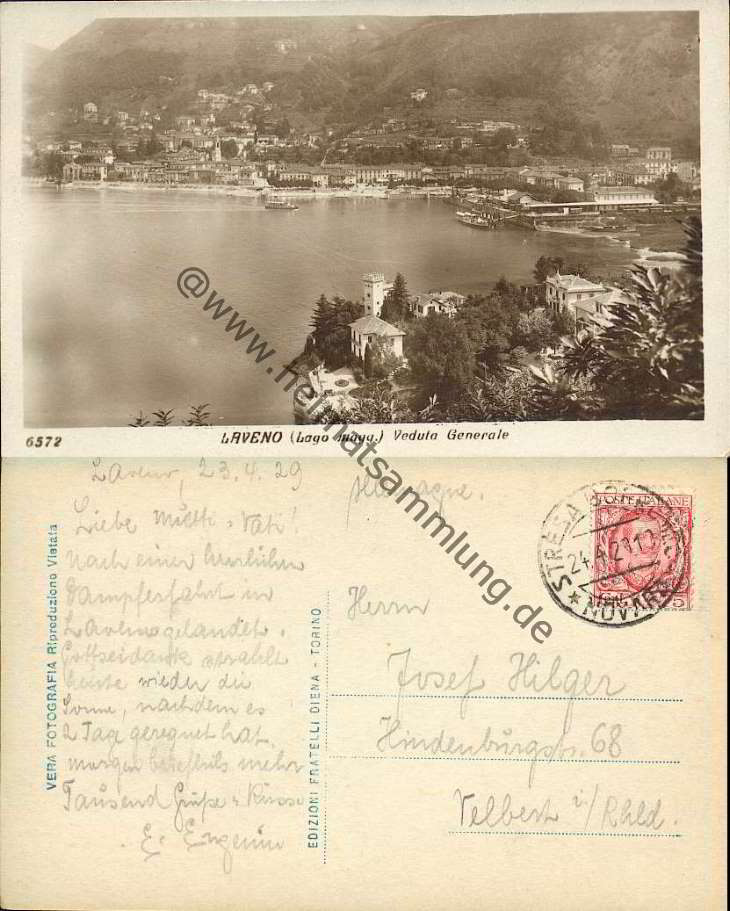 6572 LAVENO (Lago magg.) Veduta Generale
@www.heimatsammlung.de
Laveno, 23.4.29
Liebe Mutti u Vati!
Nach einer herrlichen
Dampferfahrt in
Laveno gelandet.
Gottseidank strahlt
heute wieder die
Sonne, nachdem es
2 Tage geregnet hat.
morgen mehr
Tausend Grüße u Küsse
E. Eugenie
VERA FOTOGRAFIA Riproduzione Vietata
EDIZIONI FRATELLI DIENA - TORINO
Allemagne.
POSTE ITALIANE
STRESA
NOVARA
Herrn
Josef Hilger
Hindenburgstr. 68
Velbert i/Rhld.